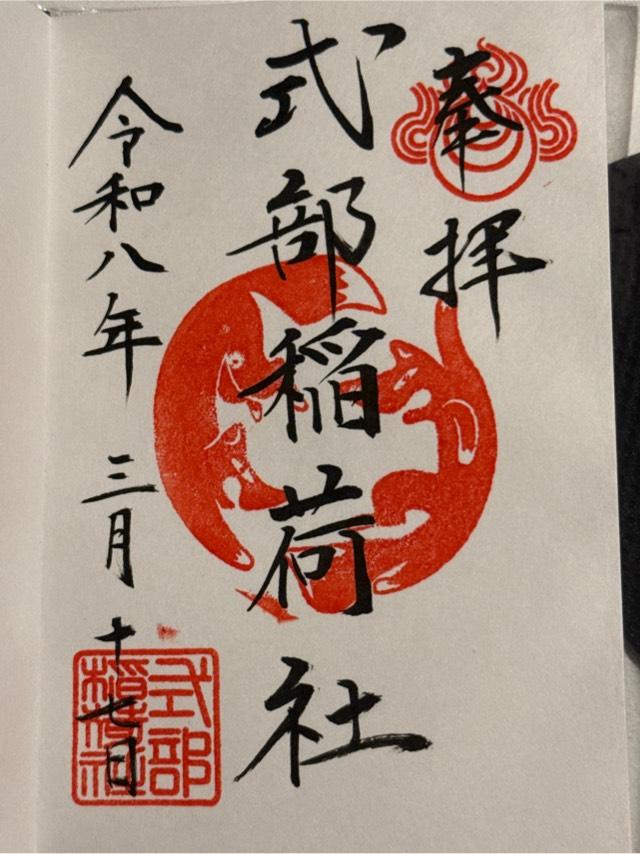 奉拝
式部稲荷社
令和八年 三月 十七日
式部
稲荷社